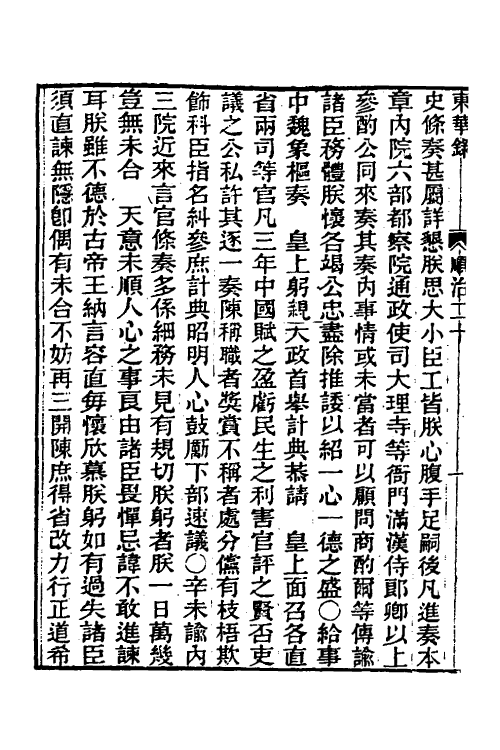 東華錄 順治二十 一
史條奏甚屬詳懇朕思大小臣工皆朕心腹手足嗣後凡進奏本
章內院六部都察院通政使司大理寺等衙門滿漢侍郎卿以上
參酌公同來奏其奏內事情或未當者可以顧問商酌爾等傳諭
諸臣務體朕懷各竭公忠盡除推諉以紹一心一德之盛〇給事
中魏象樞奏 皇上躬親大政首舉計典恭請 皇上面召各直
省兩司等官凡三年中國賦之盈虧民生之利害官評之賢否吏
議之公私許其逐一奏陳稱職者獎賞不稱者處分儻有枝梧欺
飾科臣指名糾參庶計典昭明人心鼓勵下部速議〇辛未諭內
三院近來言官條奏多係細務未見有規切朕躬者朕一日萬幾
豈無未合 天意未順人心之事良由諸臣畏憚忌諱不敢進諫
耳朕雖不德於古帝王納言容直每懷欣慕朕躬如有過失諸臣
須直諫無隱卽偶有未合不妨再三開陳庶得省改力行正道希